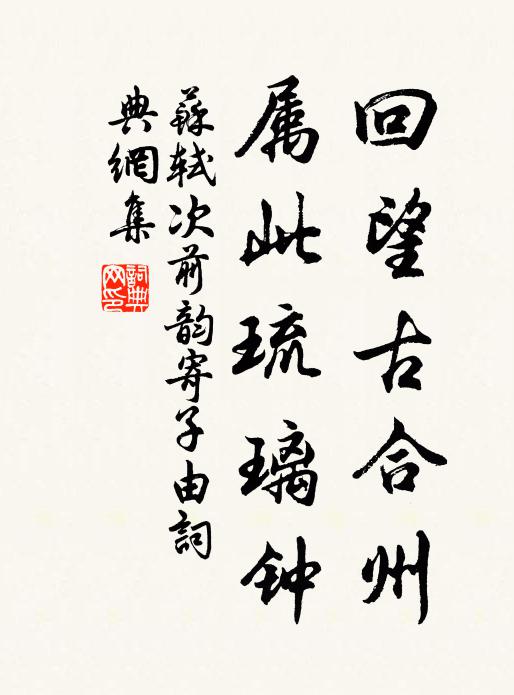 回望古合州
属此琉璃钟
蘇軾次前韵寄子由詞
典網集
詞典
网印